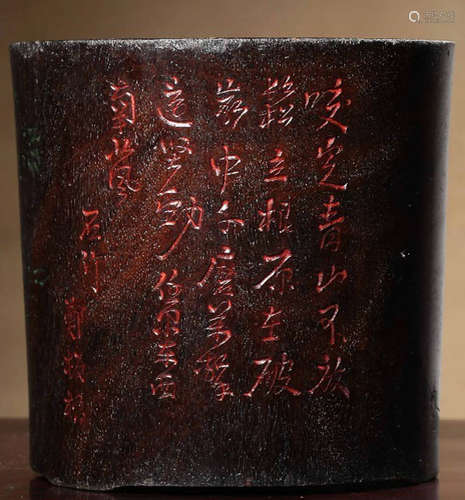 咬定青山不放
鬆立根原在破
岩中千磨萬擊
還堅勁任爾東西
南北風
石竹 鄭板橋